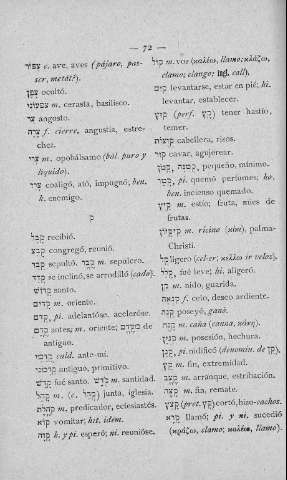 — 72 —
צפור c. ave, aves (pájaro, pas-
ser, metát?).
צפן ocultó.
צפעוני m. cerasta, basilisco.
צר angosto.
צרה f. cierre, angustia, estre-
chez.
צרי m. opobálsamo (bál. puro y
líquido).
צרר coaligó, ató, impugnó, ben.
k. enemigo.
ק
קבל recibió.
קבץ congregó, reunió.
קבר sepultó. קבר m. sepulcro.
קדד se inclinó, se arrodilló (cado).
קדוש santo.
קדים m. oriente.
קדם, pi. adelantóse, aceleróse.
קדם antes; m. oriente; מקדם de
antiguo.
קדמי cald. ante-mí.
קדמוני antiguo, primitivo.
קדש fué santo. קדש m. santidad.
קהל m. (c. קהל) junta, iglesia.
קהלת m. predicador, eclesiastés.
קוא vomitar; hit. idem.
קוה k. y pi. esperó; ni. reunióse.
קול m. vor (καλέω, llamo; κλάζω,
clamo; clango; ingl. call).
קום levantarse, estar en pié; hi.
levantar, establecer.
קוץ (perf. קץ) tener hastío,
temer.
קוצות cabellera, rizos.
קור cavar, agujerear.
קטן, קטן, pequeño, mínimo.
קטר, pi. quemó perfumes; ho.
ben. incienso quemado.
קיץ m. estío; fruta, nues de
frutas.
קיקיון m. ricino (κίκι), palma-
Christi.
קל ligero (celer; κέλλω ir veloz).
קלל, fué leve; hi. aligeró.
קן m. nido, guarida.
קנאה f. celo, deseo ardiente.
קנה poseyó, ganó.
קנה m. caña (canna, κάνη).
קנין m. posesión, hechura.
קנן, pi. nidificó (denomin. de קן).
קץ m. fin, extremidad.
קצב m. arranque, estribación.
קצה m. fin, remate.
קצץ (pret. קץ) cortó, hizo cachos.
קרא llamó; pi. y ni. sucedió
(κράζω, clamo; καλέω, llamo).